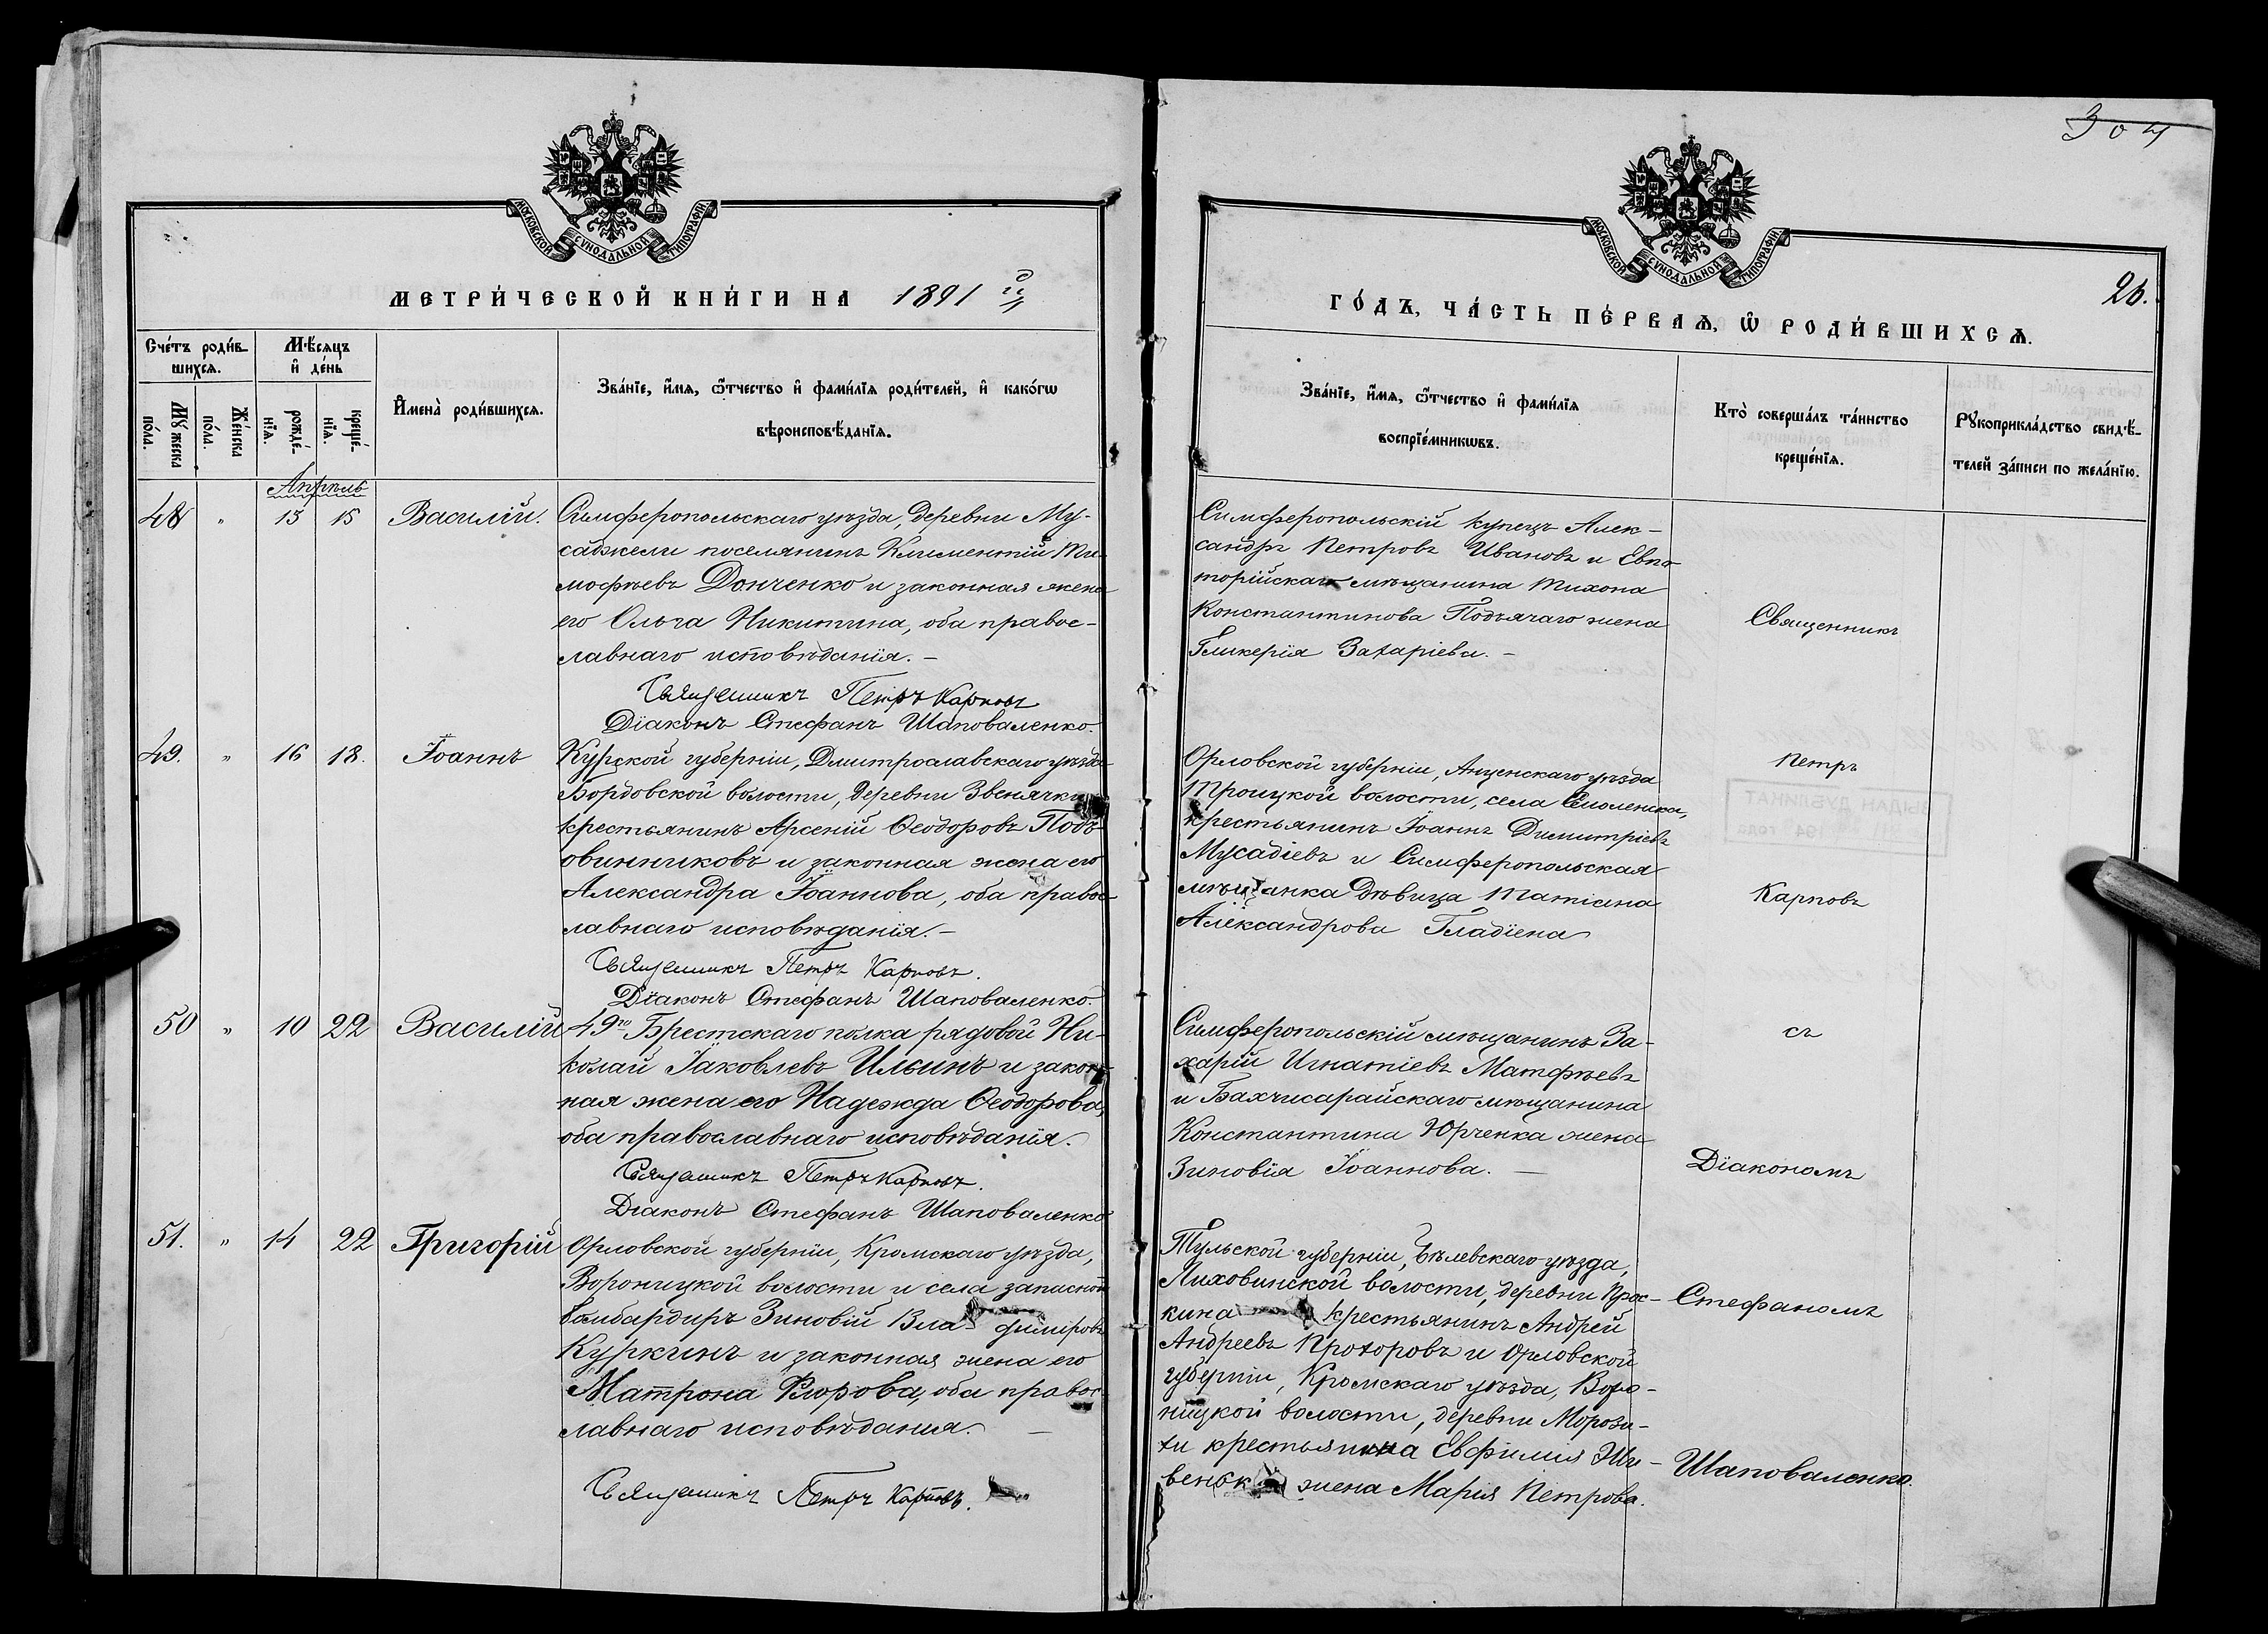 304
МОСКОВСКОЙ СУНОДАЛЬНОЙ ТИПОГРАФІИ
МЕТРИ́ЧЕСКОЙ КНИ́ГИ НА 1891 й
Сче́тъ роди́в-
шихсѧ.
Мѣ́сѧцъ
и҆ де́нь
Мꙋ́жеска
по́ла.
Же́нска
по́ла.
рожде́-
нїѧ.
креще́-
нїѧ.
И҆мена̀ роди́вшихсѧ.
Зва́нїе, и҆́мѧ, ѻ҆́тчество и҆ фами́лїѧ роди́телей, и҆ како́гѡ
вѣроисповѣ́данїѧ.
Апрѣль
48 " 13 15 Василій.
Симферопольскаго уѣзда, деревни Му-
саджели поселянинъ Климентій Ти-
мофѣевъ Донченко и законная жена
его Ольга Никитина, оба правос-
лавнаго исповѣданія. –
Священникъ Петръ Карповъ
Діаконъ Стефанъ Шаповаленко.
49. " 16 18. Іоаннъ
Курской губерніи, Дмитрославскаго уѣзда
Бордовской волости, деревни Звенячки
крестьянинъ Арсеній Ѳеодоровъ Подъ-
овинниковъ и законная жена его
Александра Іоаннова, оба правос-
лавнаго исповѣданія. –
Священникъ Петръ Карповъ.
Діаконъ Стефанъ Шаповаленко.
50 " 10 22 Василій
49го Брестскаго полка рядовой Ни-
колай Іаковлевъ Ильинъ и закон-
ная жена его Надежда Ѳеодорова,
оба православнаго исповѣданія.
Священникъ Петръ Карповъ.
Діаконъ Стефанъ Шаповаленко
51. " 14 22 Григорій
Орловской губерніи, Кромскаго уѣзда,
Вороницкой волости и села запасной
бомбардиръ Зиновій Вла- диміровъ
Куркинъ и законная жена его
Матрона Флорова, оба правос-
лавнаго исповѣдания. –
Священникъ Петръ Карповъ.
МОСКОВСКОЙ СУНОДАЛЬНОЙ ТИПОГРАФІИ
26.
ГО́ДЪ, ЧА́СТЬ ПЕ́РВАѦ, Ѡ҆ РОДИ́ВШИХСѦ.
Зва́нїе, и҆́мѧ, ѻ҆́тчество и҆ фами́лїѧ
воспрїе́мникѡвъ.
Кто̀ соверша́лъ та́инство
креще́нїѧ.
Рꙋкоприкла́дство свидѣ́-
телей за́писи по жела́нїю.
Симферопольскій купецъ Алек-
сандръ Петровъ Ивановъ и Евпа-
торійскаго мѣщанина Тихона
Константинова Подъячаго жена
Гликерія Захаріева. –
Орловской губерніи, Мценскаго уѣзда
Троицкой волости, села Смоленска,
крестьянинъ Іоаннъ Димитріевъ
Мусадіевъ и Симферопольская
мѣщанка дѣвица Татіана
Александрова Гладіена
Симферопольскій мѣщанинъ За-
харій Игнатіевъ Матфѣевъ
и Бахчисарайскаго мѣщанина
Константина Юрченка жена
Зиновія Іоаннова. –
Тульской губерніи, Бѣлевскаго уѣзда,
Лиховинской волости, деревни Прос-
кина крестьянинъ Андрей
Андреевъ Прохоровъ и Орловской
губерніи, Кромскаго уѣзда, Воро-
ницкой волости, деревни Морози-
хи крестьянина Евфимія
жена Марія Петрова.
Священникъ
Петръ
Карповъ
съ
Діакономъ
Стефаномъ
Шаповаленко.
ВЫДАН ДУБЛИКАТ
194 года